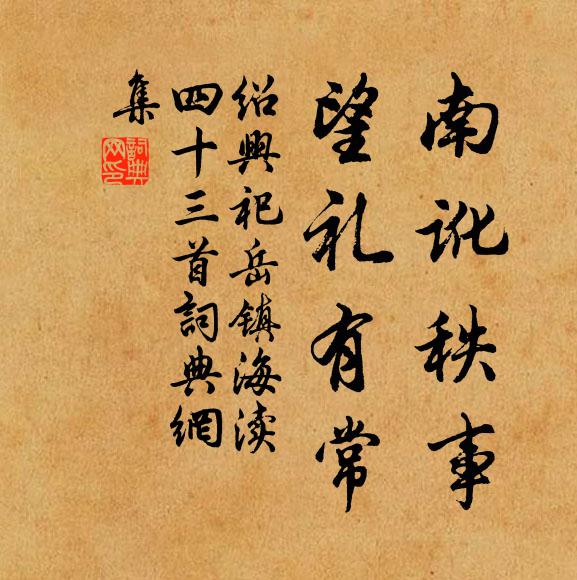 南讹秩事
望礼有常
绍兴祀岳镇海渎
四十三首词典網
集
詞典
网印